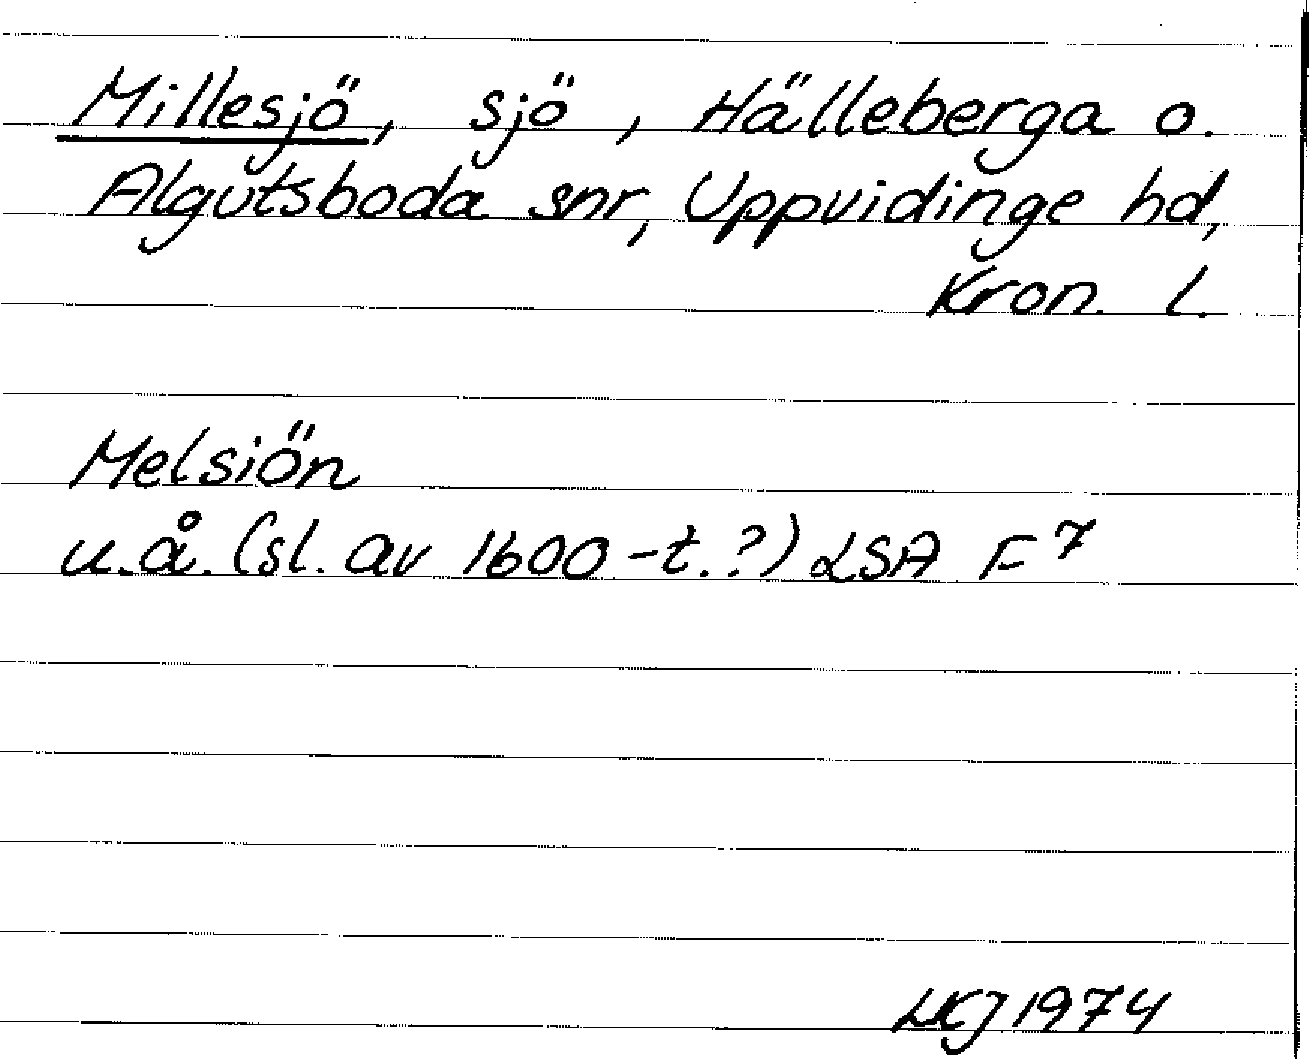 Millesjö, sjö, Hälleberga o.
Algutsboda snr, Uppvidinge hd,
Kron. l.
Melsiön
u.å. (sl. av 1600-t.?) LSA F7
LKJ 1974